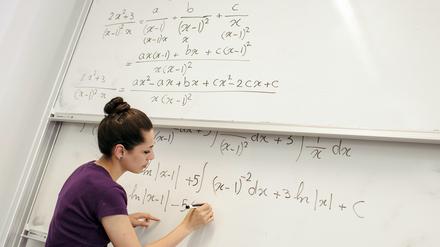 (2x²+3)/((x-1)²x) = a/(x-1) + b/(x-1)² + c/x
(x-1)x x (x-1)²
= (ax(x-1) + bx + c(x-1)²)/(x(x-1)²)
(2x²+3)/((x-1)²x) = (ax²-ax+bx+cx²-2cx+c)/(x(x-1)²)
(x-1)² dx + 3∫ 1/x dx
ln|x-1| + 5∫(x-1)⁻²dx + 3ln|x| + C
ln|x-1| - 5